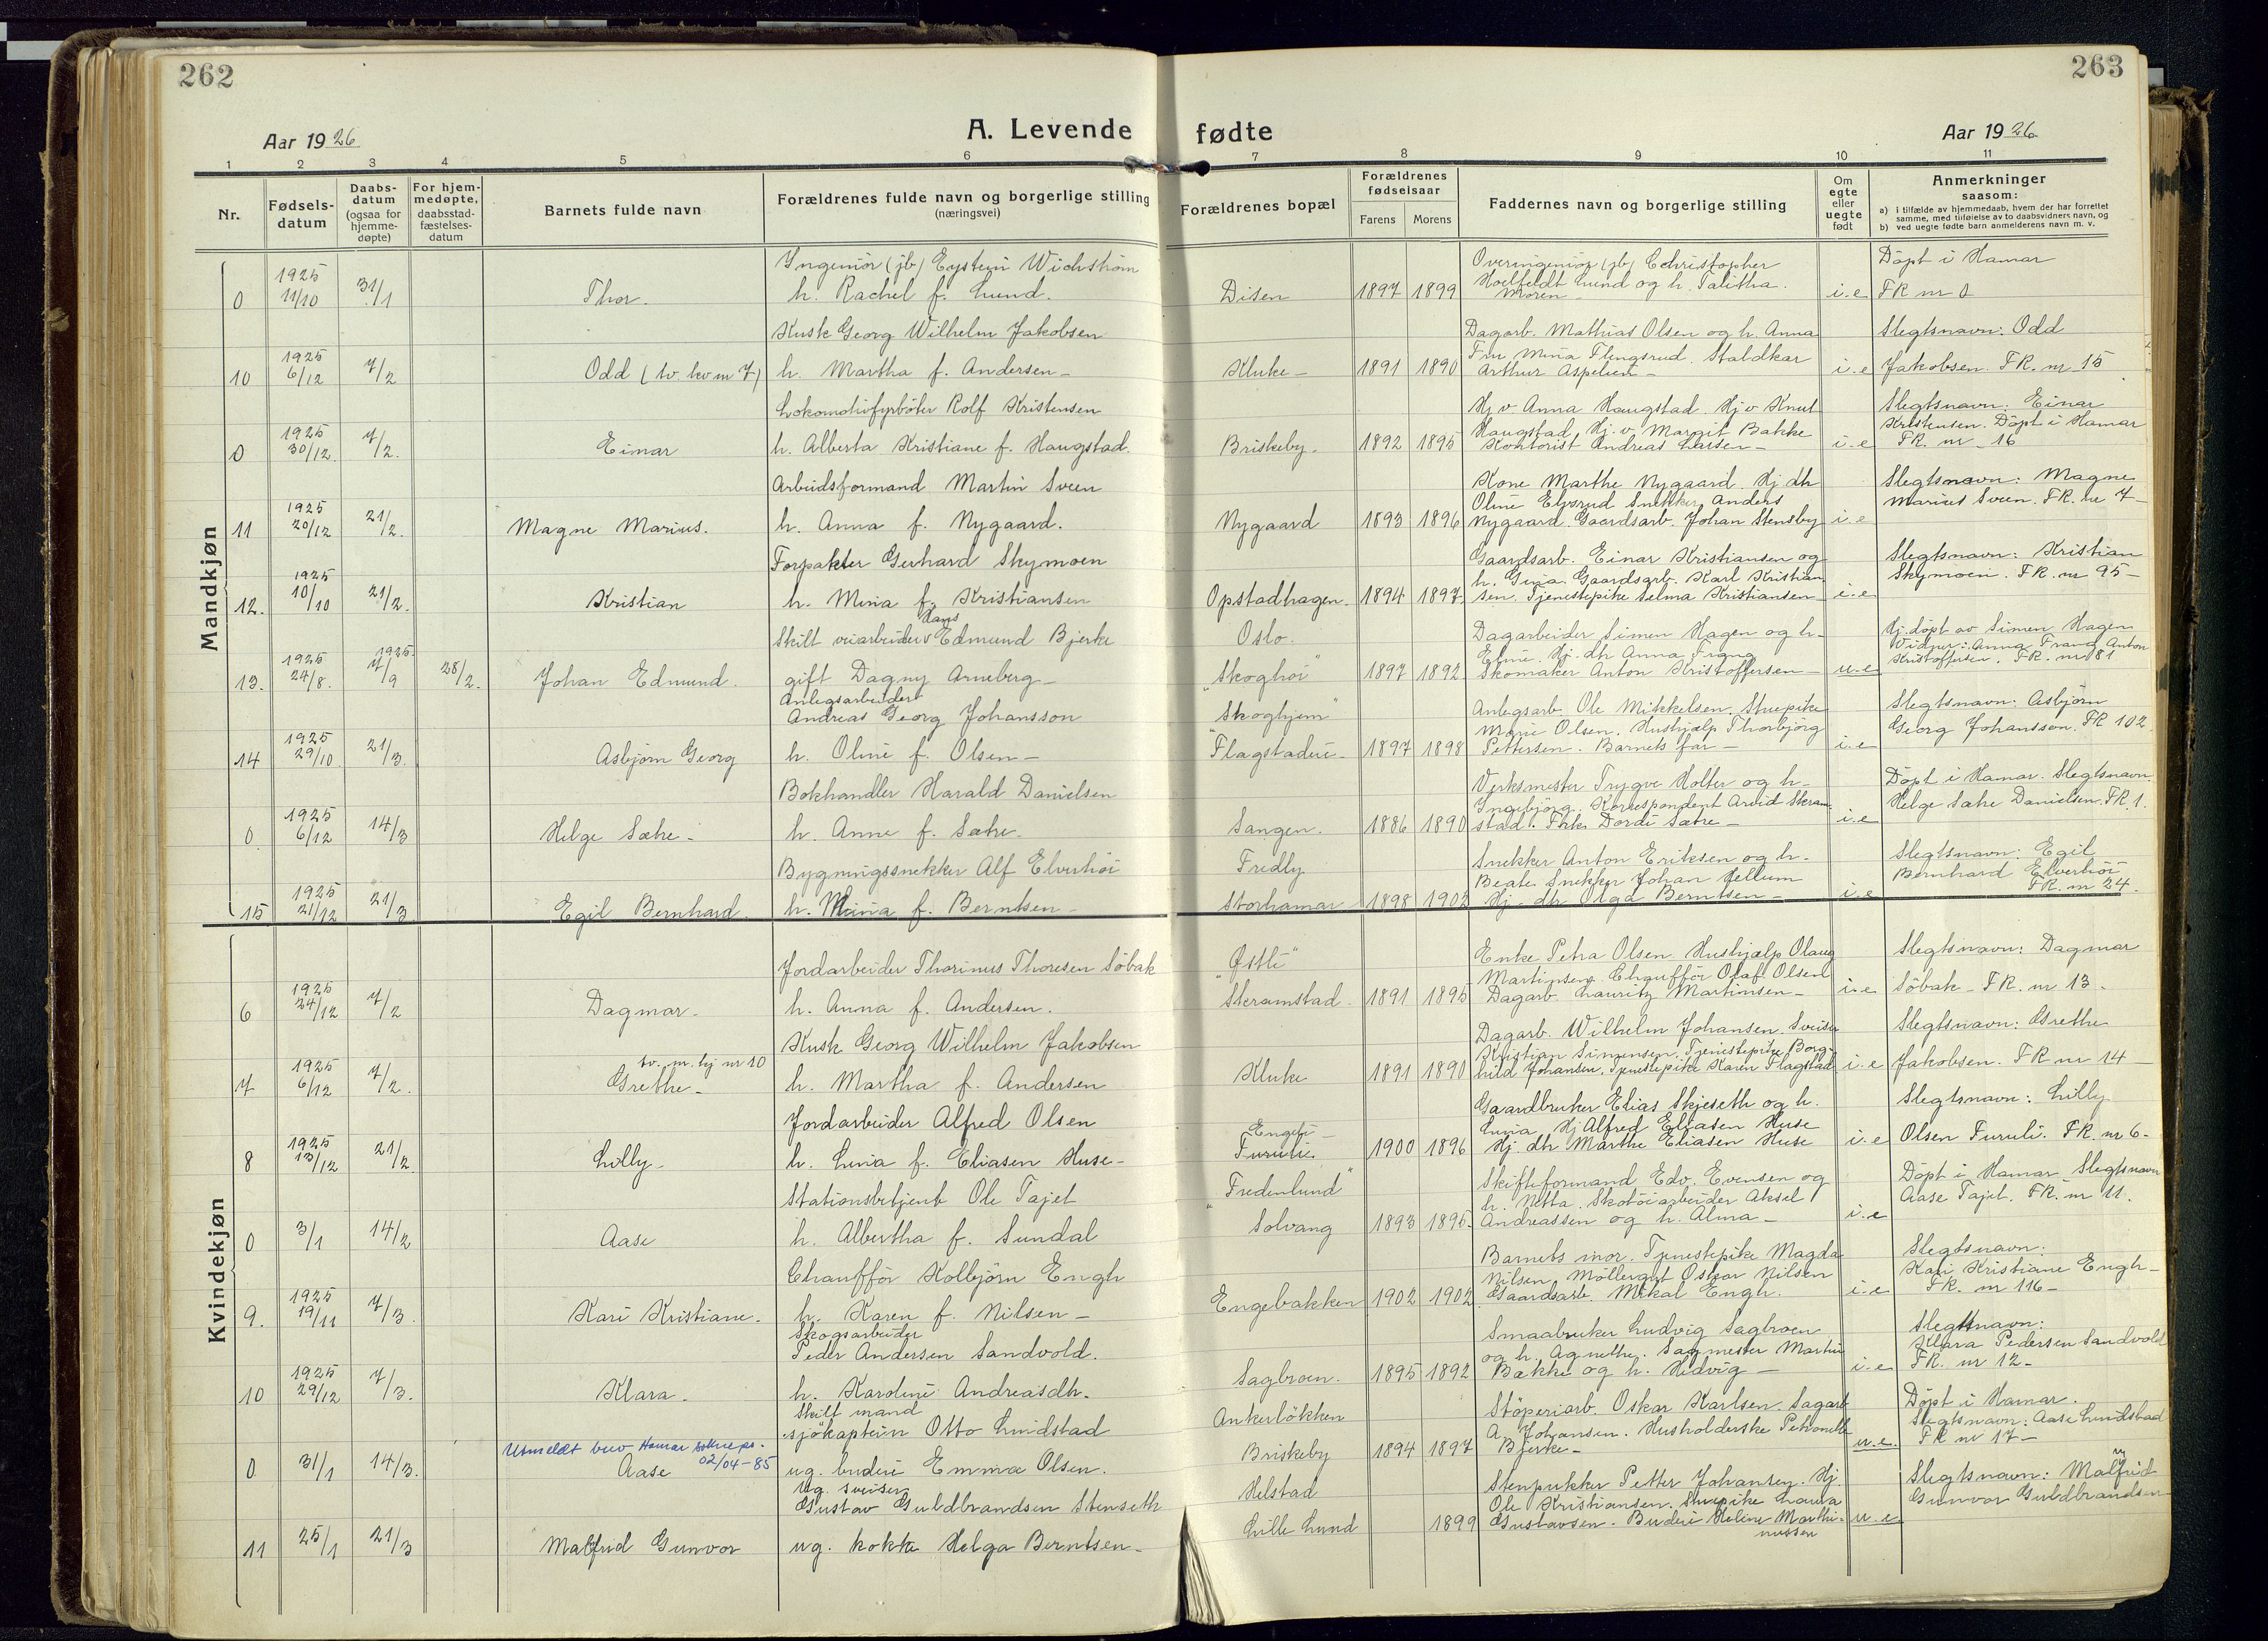 262
263
A. Levende fødte
Aar 1926
Aar 1926
1 2 3 4 5 6 7 8 9 10 11
Nr.
Fødsels-
datum
Daabs-
datum
(ogsaa for
hjemme-
døpte)
For hjem-
medøpte,
daabsstad-
fæstelses-
datum
Barnets fulde navn
Forældrenes fulde navn og borgerlige stilling
(næringsvei)
Forældrenes bopæl
Forældrenes
fødselsaar
Farens Morens
Faddernes navn og borgerlige stilling
Om
egte
eller
uegte
født
Anmerkninger
saasom:
a) i tilfælde av hjemmedaab, hvem der har forrettet
samme, med tilføielse av to daabsvidners navn, og
b) ved uegte fødte barn anmelderens navn m. v.
Mandkjøn
Ingeniør (jb) Eystein Wichstrøm
0 1925 11/10 31/1 Thor. h. Rachel f. Lund.
Disen 1897 1899 i.e
Overingeniør (jb) Christopher
Hoelfeldt Lund og h. Talitha.
Moren -
Döpt i Hamar
FR nr 0
Kusk Georg Wilhelm Jakobsen
10 1925 6/12 7/2 Odd (tv. kv nr 7) h. Martha f. Andersen -
Kluke - 1891 1890 i.e
Dagarb. Mathias Olsen og h. Anna
Fru Mina Flengsrud. Staldkar
Arthur Aspelien -
Slegtsnavn: Odd
Jakobsen. FR. nr 15
Lokomotivfyrböter Rolf Kristensen
0 1925 30/12 7/2. Einar h. Alberta Kristiane f. Haugstad.
Briskeby. 1892 1895 i.e
Hj v Anna Haugstad. Hj v Knut
Haugstad. Hj. v. Margit Bakke
Kontorist Andreas Larsen -
Slegtsnavn: Einar
Kristensen. Döpt i Hamar
FR. nr 16
Arbeidsformand Martin Sveen
11 1925 20/12 21/2. Magne Marius. h. Anna f. Nygaard.
Nygaard 1893 1896 i.e
Kone Marthe Nygaard. Hj. dh
Oline Elvsrud Snekker Anders
Nygaard. Gaardsarb. Johan Stensby
Slegtsnavn: Magne
Marius Sveen. FR. nr 7 -
Forpakter Gerhard Skymoen
12. 1925 10/10 21/2. Kristian h. Mina f. Kristiansen
Opstadhagen. 1894 1897. i.e
Gaardsarb. Einar Kristiansen og
h. Gina. Gaardsarb. Karl Kristian
sen. Tjenestepike Selma Kristiansen
Slegtsnavn: Kristian
Skymoen. FR. nr 95 -
Hans
Skilt veiarbeider Edmund Bjerke
13. 1925 24/8. 1925 7/9 28/2. Johan Edmund. gift Dagny Arneberg -
Oslo.
"Skoghöi" 1897 1892 u.e
Dagarbeider Simen Hagen og h.
Eline. Hj. dh Anna Frang
Skomaker Anton Kristoffersen -
Hj. döpt av Simen Hagen
Vidner: Anna Frang Anton
Kristoffersen. FR. nr 81
Anlegsarbeider
Andreas Georg Johansson
14 1925 29/10 21/3. Asbjørn Georg h. Oline f. Olsen -
"Skoghjem"
Flagstadeie - 1897 1898 i.e
Anlegsarb. Ole Mikkelsen. Stuepike
Marie Olsen. Hushjælp Thorbjörg
Pettersen. Barnets far -
Slegtsnavn: Asbjörn
Georg Johansson. FR 102
Bokhandler Harald Danielsen
0 1925 6/12 14/3 Helge Sæhre - h. Anne f. Sæhre.
Sangen. 1886 1890 i.e
Verksmester Trygve Holter og h.
Ingebjörg. Korrespondent Arvid Skram
stad. Frk. Dordi Sæhre -
Döpt i Hamar. Slegtsnavn:
Helge Sæhre Danielsen. FR. 1.
Bygningssnekker Alf Elverhöi
15 1925 21/12 21/3 Egil Bernhard. h. Mina f. Berntsen -
Fredly
Storhamar 1898 1902 i.e
Snekker Anton Eriksen og h.
Beate. Snekker Johan Jellum
Hj. dh Olga Berntsen -
Slegtsnavn: Egil
Bernhard Elverhöi
FR. nr 24.
Kvindekjøn
Jordarbeider Thorinus Thoresen Söbak
6 1925 24/12 7/2 Dagmar. h. Anna f. Andersen.
"Østli"
Skramstad. 1891 1895 i.e
Enke Petra Olsen. Hushjælp Olaug
Martinsen. Chaufför Olaf Olsen
Dagarb. Lauritz Martinsen -
Slegtsnavn: Dagmar
Söbak - FR. nr 13.
Kusk Georg Wilhelm Jakobsen
tv. m. hj nr 10
7 1925 6/12 7/2. Grethe - h. Martha f. Andersen
Kluke 1891 1890 i.e
Dagarb. Wilhelm Johansen. Sveiser
Kristian Simensen. Tjenestepike Borg-
hild Johansen. Tjenestepike Karen Flagstad
Slegtsnavn: Grethe
Jakobsen. FR nr 14 -
Jordarbeider Alfred Olsen
8 1925 13/12 21/2 Lilly - h. Lina f. Eliasen Huse -
Engeli -
Furuli. 1900 1896 i.e
Gaardbruker Elias Skjeseth og h.
Lina. Hj Alfred Eliasen Huse
Hj. dh Marthe Eliasen Huse
Slegtsnavn: Lilly
Olsen Furuli. FR. nr 6 -
Stationsbetjent Ole Tajet
0 3/1 14/2 Aase h. Albertha f. Sundal
"Fredenlund"
Solvang 1893 1895. i.e
Skifteformand Edv. Evensen og
h. Netta. Skotöiarbeider Aksel
Andreassen og h. Alma -
Döpt i Hamar Slegtsnavn
Aase Tajet. FR. nr 11.
Chaufför Kolbjörn Engh
9. 1925 19/11 7/3 Kari Kristiane. h. Karen f. Nilsen -
Engebakken 1902 1902 i.e
Barnets mor. Tjenestepike Magda
Nilsen. Möllergut Oskar Nilsen
Gaardsarb. Mikal Engh.
Slegtsnavn:
Kari Kristiane Engh -
FR. nr 116 -
Skogsarbeider
Peder Andersen Sandvold.
10 1925 29/12 7/3. Klara. h. Karoline Andreasdh.
Sagbroen. 1895 1892 i.e
Smaabruker Ludvig Sagbroen
og h. Agnethe. Sagmester Martin
Bakke og h. Hedvig -
Slegtsnavn:
Klara Pedersen Sandvold
FR. nr 12 -
Skilt mand
sjökaptein Otto Lindstad
Utmeldt 02/04-85
0 31/1 14/3. Aase ug. budeie Emma Olsen.
Ankerlökken
Briskeby 1894 1897 u.e.
Stöperiarb. Oskar Karlsen. Sagarb
A Johansen. Husholderske Petronelle
Bjerke -
Döpt i Hamar.
Slegtsnavn: Aase Lindstad
FR nr 17 -
Ug. sveiser
Gustav Guldbrandsen Stenseth
11 25/1 21/3 Malfrid Gunvor ug. kokke Helga Berntsen -
Helstad
Lille Lund 1899 u.e
Stenpukker Petter Johansen. Hj.
Ole Kristiansen. Stuepike Laura
Gustavsen. Budeie Helene Marthi-
nussen
Slegtsnavn: Malfrid
Gunvor Guldbrandsen